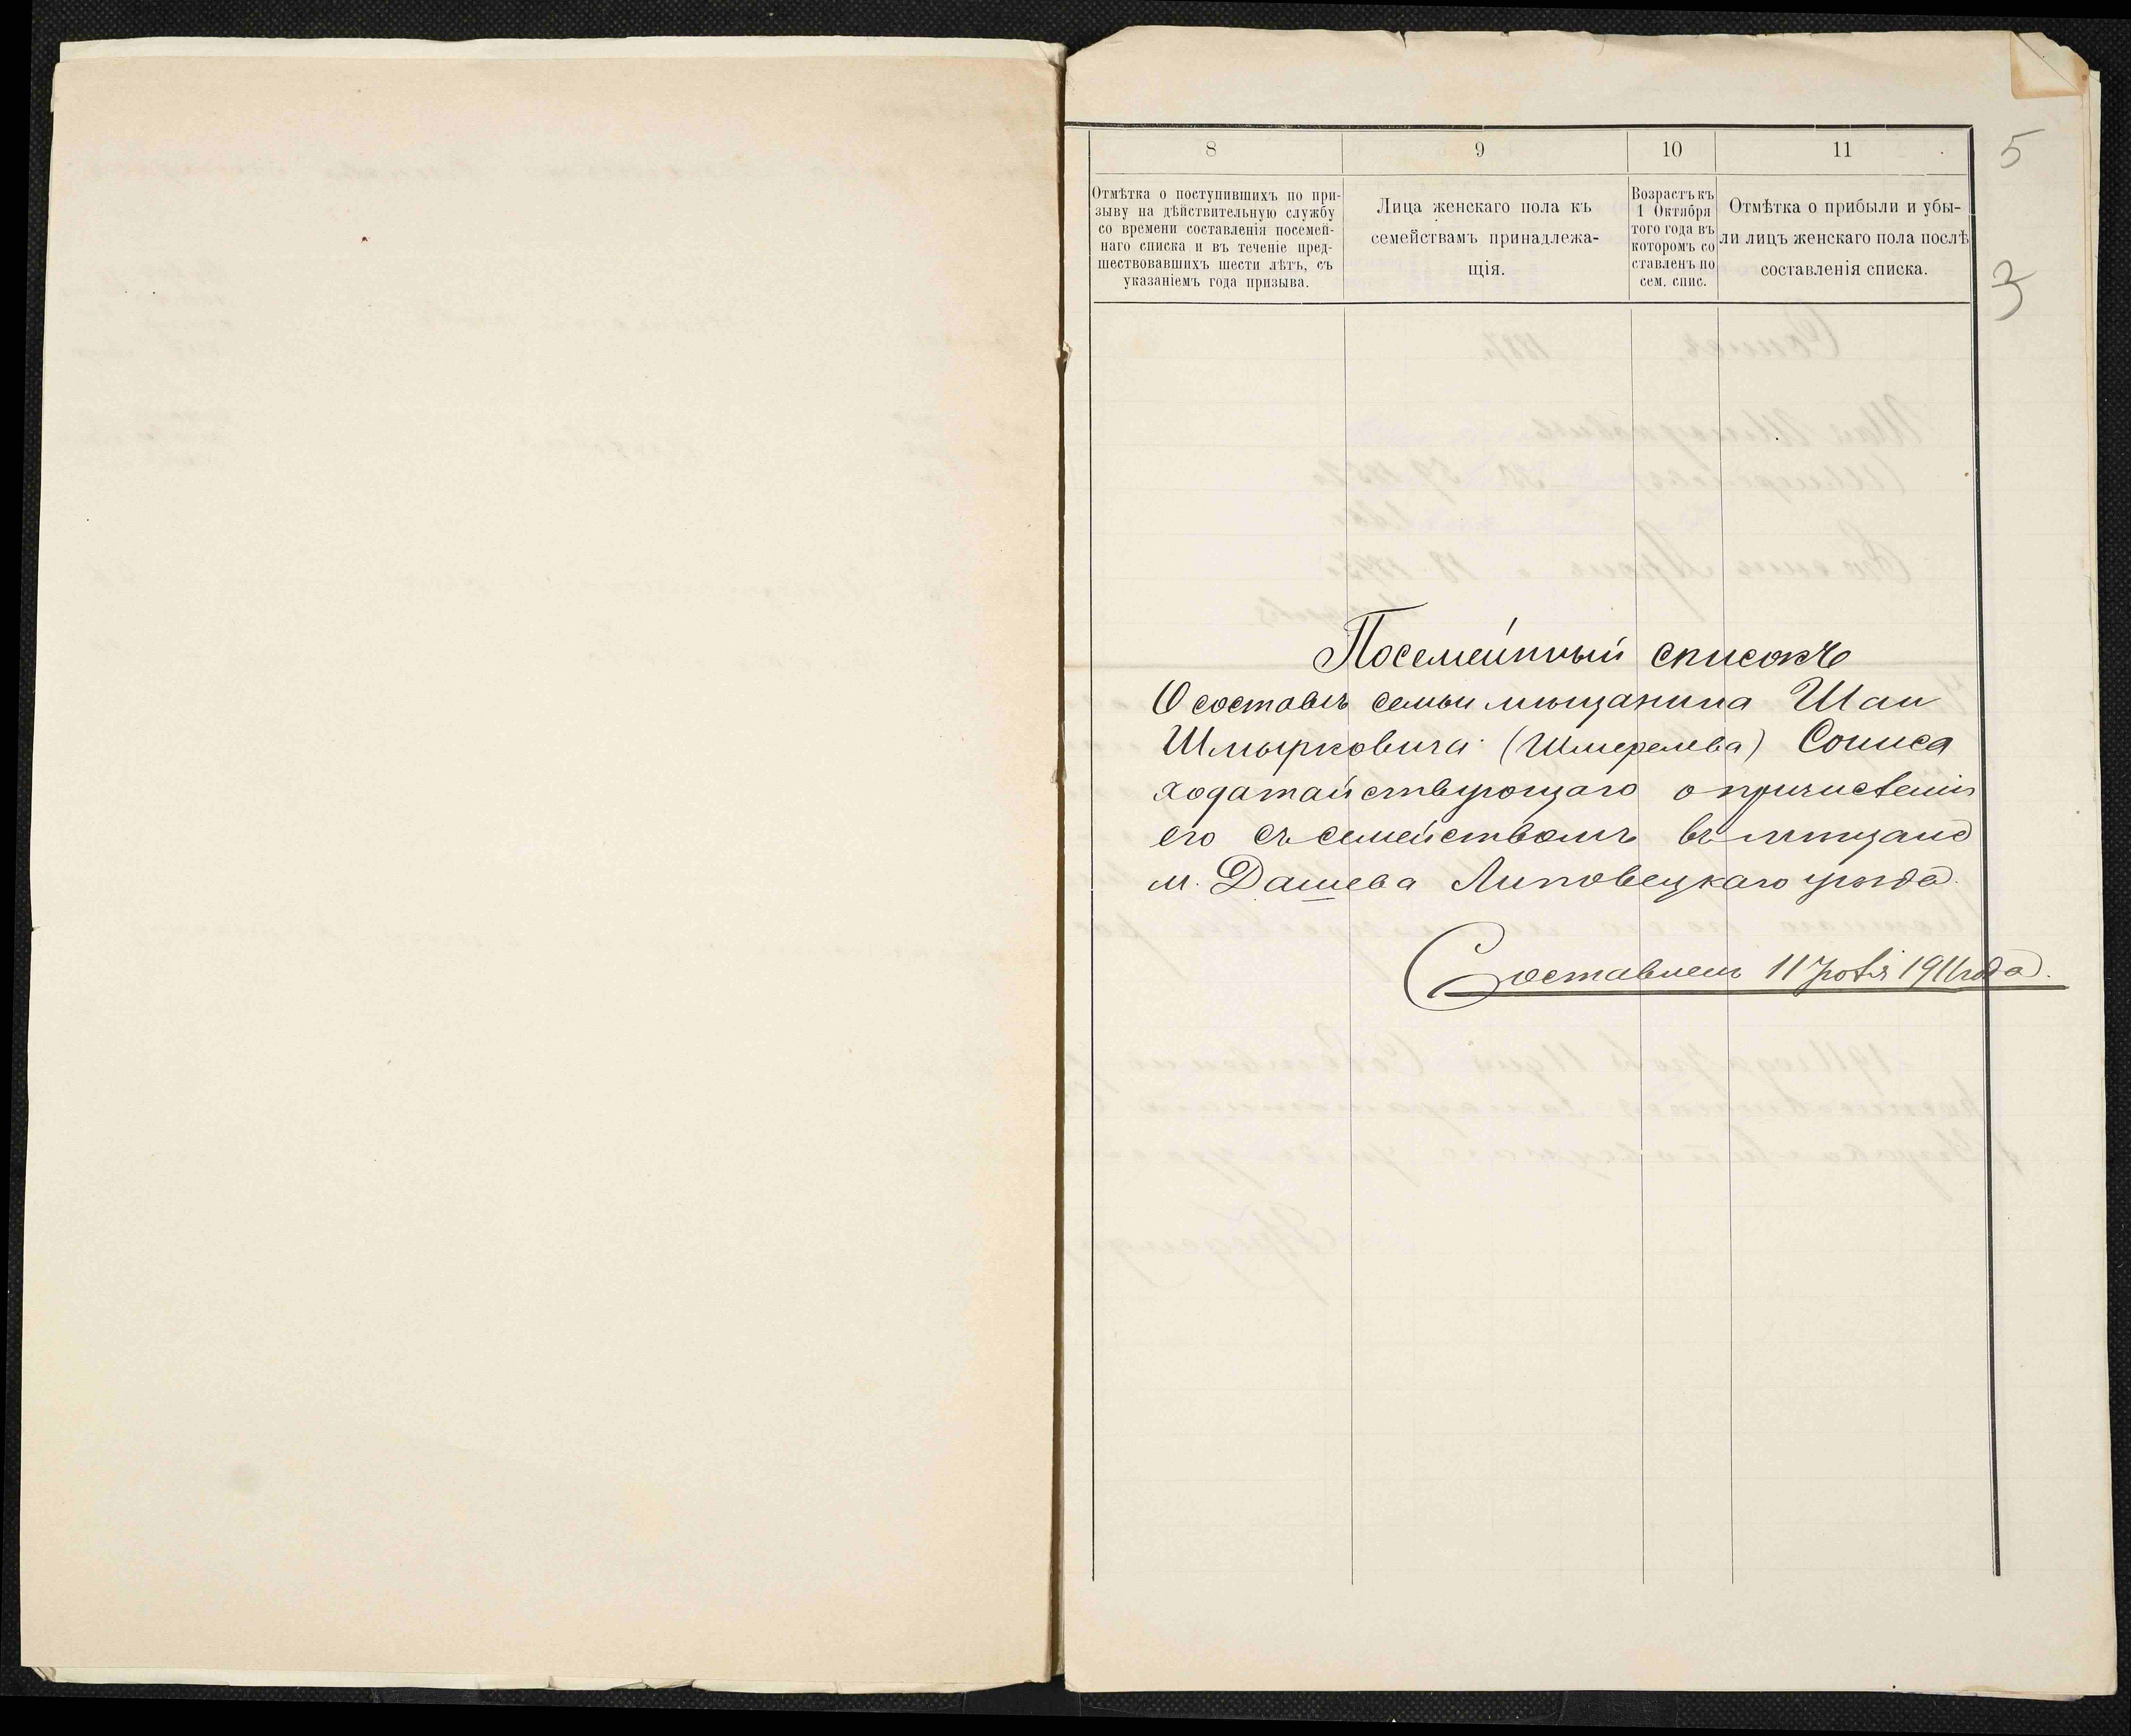 5
3
8
9
10
11
Отмѣтка о поступившихъ по при-
зыву на дѣйствительную службу
со времени составленія посемей-
наго списка и въ теченіе пред-
шествовавшихъ шести лѣтъ, съ
указаніемъ года призыва.
Лица женскаго пола къ
семействамъ принадлежа-
щія.
Возрастъ къ
1 Октября
того года въ
которомъ со
ставленъ по
сем. спис.
Отмѣтка о прибыли и убы-
ли лицъ женскаго пола послѣ
составленія списка.
Посемейный списокъ
О составѣ семьи мѣщанина Шаи
Шмырковича (Шмерелева) Сониса
ходатайствующаго о причисленіи
его съ семействомъ въ мѣщане
м. Дашева Липовецкаго уѣзда.
Составленъ 11 1911 года.